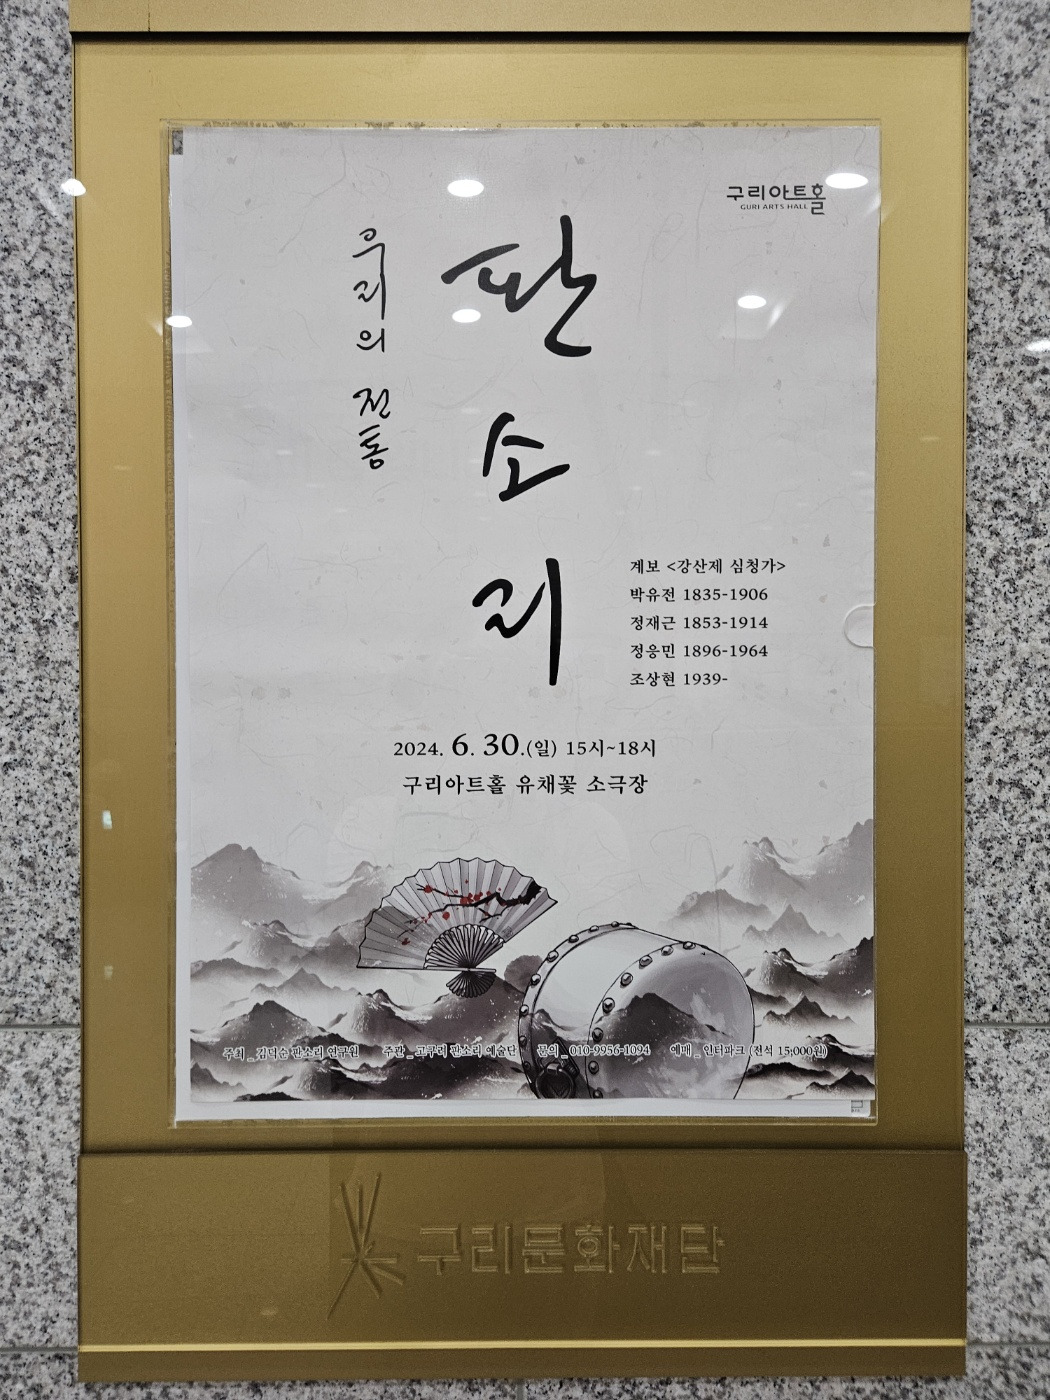 구리아트홀
GURI ARTS HALL
우리의 전통
판소리
계보 <강산제 심청가>
박유전 1835-1906
정재근 1853-1914
정응민 1896-1964
조상현 1939-
2024. 6. 30.(일) 15시~18시
구리아트홀 유채꽃 소극장
주최 _ 김덕순 판소리 연구원 주관 _ 고구려 판소리 예술단 문의 _ 010-9956-1094 예매 _ 인터파크 (전석 15,000원)
구리문화재단